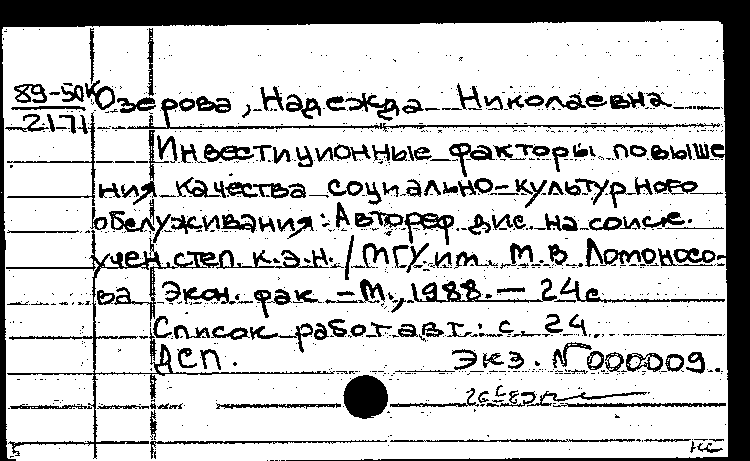 89-50к Озерова, Надежда Николаевна
2171
Инвестиционные факторы повыше
ния качества социально-культурного
обслуживания: Автореф дис. на соиск.
учен. степ. к.э.н. / МГУ им. М.В Ломоносо-
ва Экон. фак. - М., 1988. - 24с
Список работ авт.: с. 24.
ДСП. Экз. № 000009.